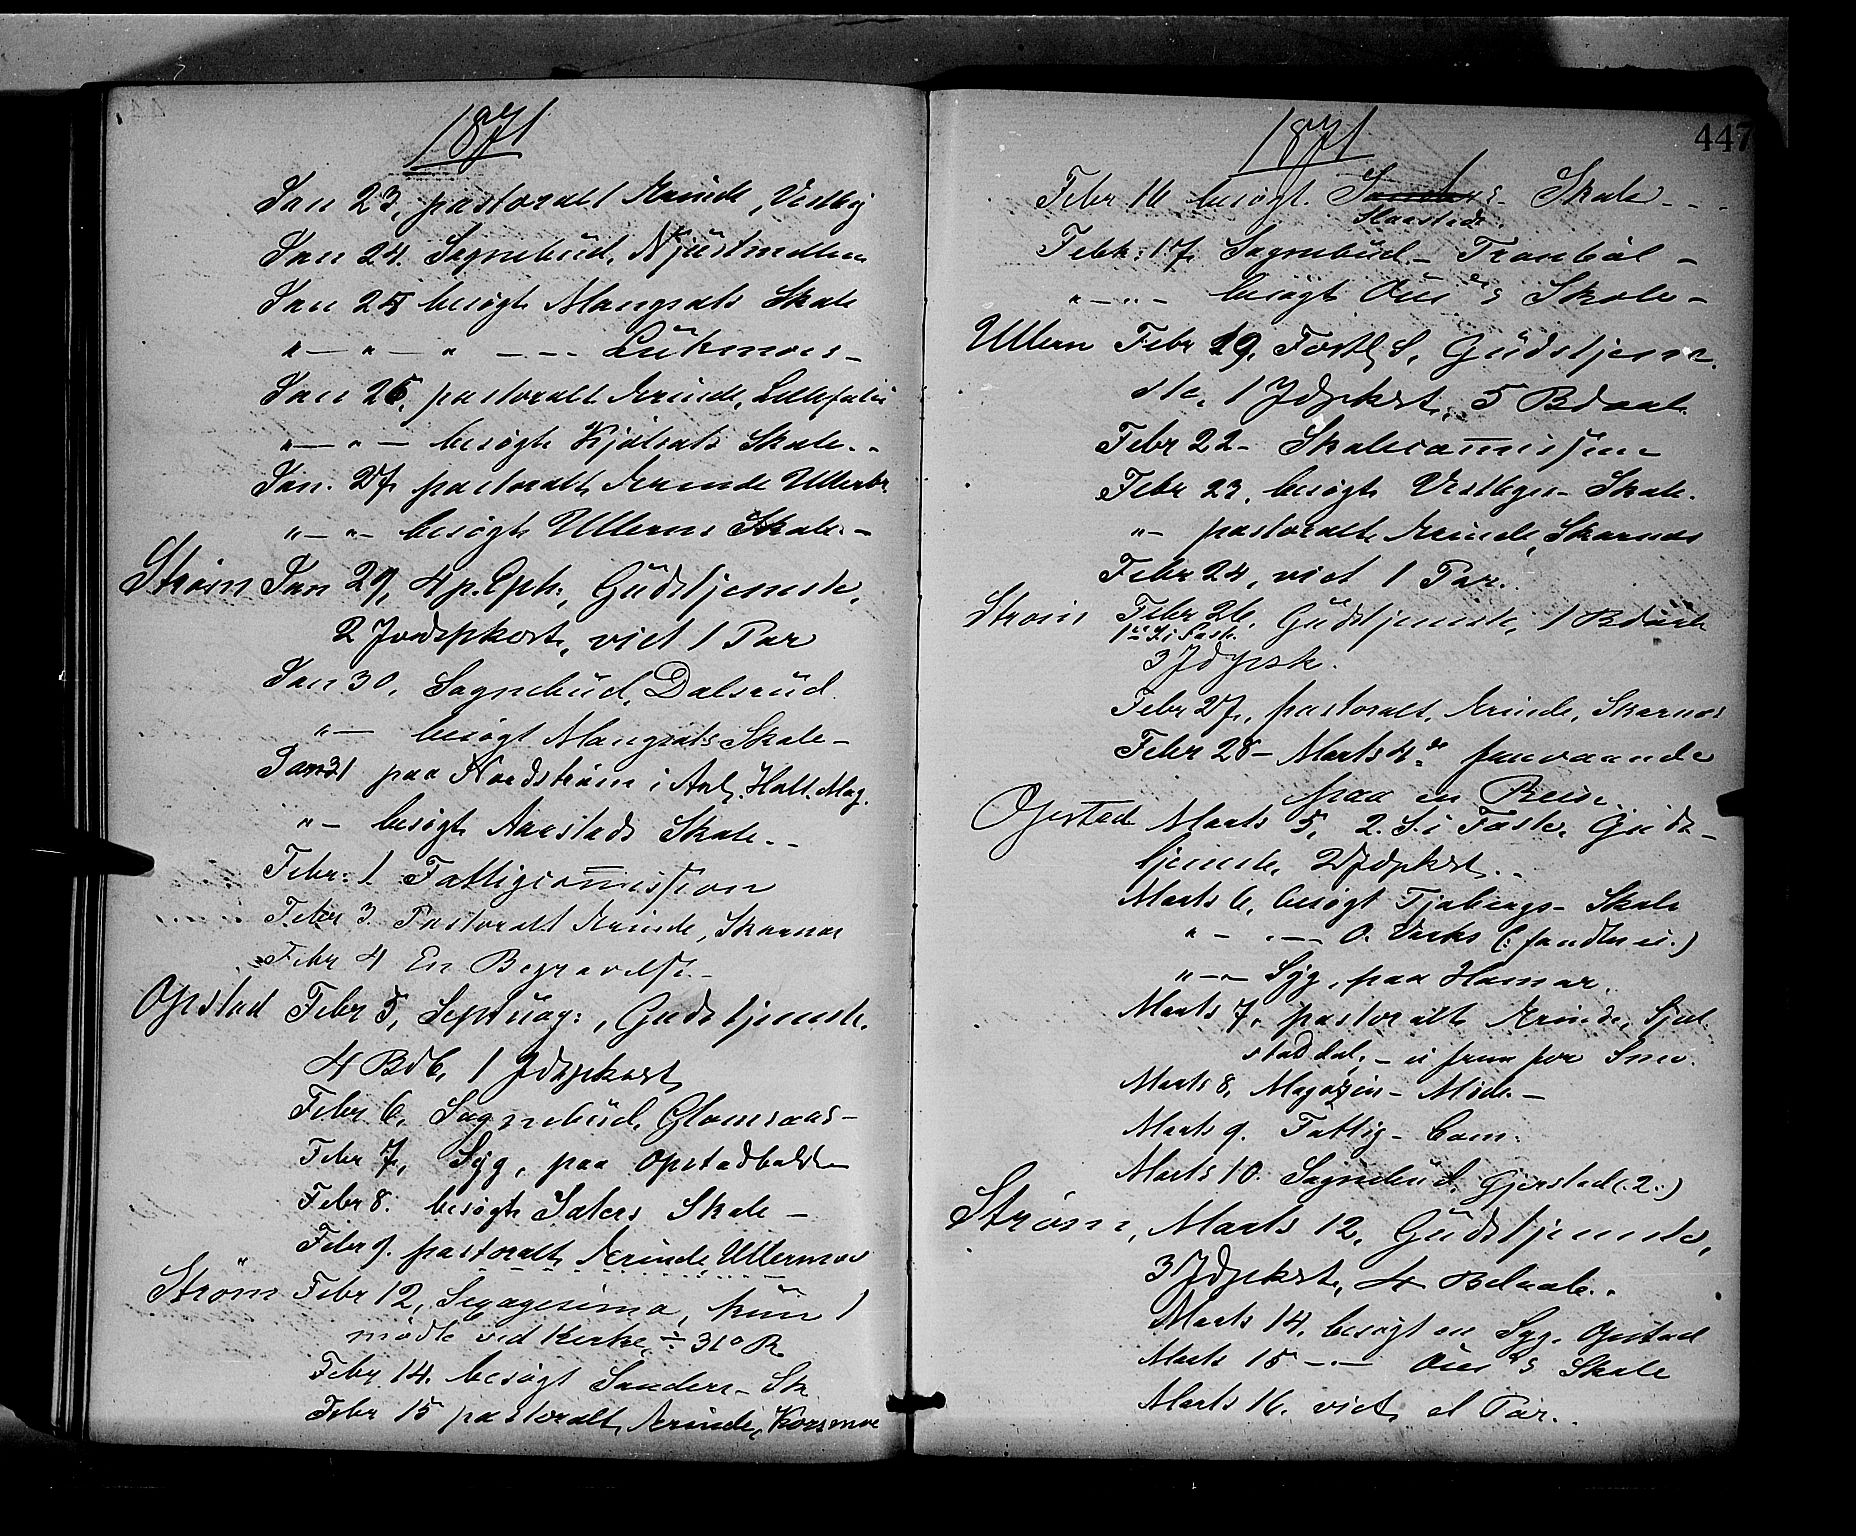 1871
Jan 23, pastoralt Ærinde, Vestby
Jan 24. Sognebud,
Jan 25 besøgt Mangsæts Skole
" — " — " — — —
Jan 26, pastoralt Ærinde,
" — " — besøgt Kjølsæts Skole. -
Jan. 27, pastoralt Ærinde
" — " — besøgt Ullerns Skole. -
Strøm Jan 29, 4 p. Eph:, Gudstjeneste,
2 Jvdspkost, viet 1 Par
Jan 30, Sognebud, Dalsrud.
" — besøgt Mangsæts Skole —
Jan 31 paa Nordstrøm i Anl.
" — besøgt Aarstads Skole. -
Febr: 1. Fattigcommission
Febr 3. Pastoralt Ærinde, Skarnæs
Febr 4 En Begravelse —
Opstad Febr 5, Septuag:, Gudstjeneste.
4 Bdb, 1 Jdspkost
Febr 6, Sognebud, Glomsaas —
Febr 7, Syg, paa Opstad
Febr 8. besøgt Sæters Skole —
Febr 9. pastoralt Ærinde, Ullernmoe
Strøm Febr 12, Sexagesima, kun 1
mødte ved Kirke, ÷ 31° R.
Febr 14. besøgt Sanders - Sk.
Febr 15 pastoralt Ærinde, Korsmoe
447
1871
Febr 16 besøgt Sanders - Skole - - -
Slaastads
Febr: 17, Sognebud — Tronbøl —
" — " — besøgt Ouernes Skole —
Ullern Febr 19, Fastl. S, Gudstjene-
ste, 1 Jdspkost, 5 Bdaab
Febr 22 - Skolecommission
Febr 23, besøgt Vestbyes - Skole.
" - pastoralt Ærinde, Skarnæs
Febr 24, viet 1 Par.
Strøm Febr 26, Gudstjeneste, 1 Bdaab
1ste S. i Faste.
3 Jdspk.
Febr 27, pastoralt Ærinde, Skarnæs
Febr 28 — Marts 4de fraværende
paa en Reise.
Opstad Marts 5, 2. S. i Faste, Guds-
tjeneste, 2 Jdspkost. -
Marts 6, besøgt Tjabergs - Skole
" — " — O. Værks
" — " — Syg, paa Hamar.
Marts 7, pastoralt Ærinde,
stad dal. — ei frem for Snee.
Marts 8, Magazin - Møde. —
Marts 9. Fattig - Com.
Marts 10. Sognebud, Gjerstad (: 2 :)
Strøm, Marts 12, Gudstjeneste,
3 Jdspkost, 4 Bdaab. .
Marts 14. besøgt en Syg, Opstad
Marts 15 — " — Ouernes Skole
Marts 16. viet et Par. .